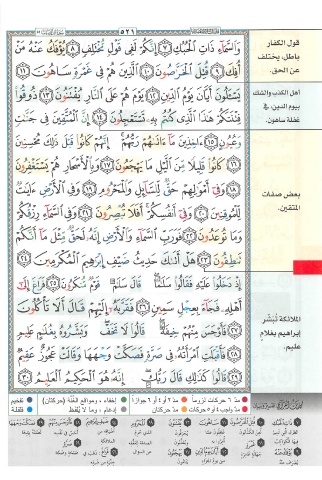 ٥٢١
وَٱلسَّمَآءِ ذَاتِ ٱلْحُبُكِ ٧ إِنَّكُمْ لَفِى قَوْلٍ مُّخْتَلِفٍ ٨ يُؤْفَكُ عَنْهُ مَنْ
أُفِكَ ٩ قُتِلَ ٱلْخَرَّٰصُونَ ١٠ ٱلَّذِينَ هُمْ فِى غَمْرَةٍ سَاهُونَ ١١
يَسْـَٔلُونَ أَيَّانَ يَوْمُ ٱلدِّينِ ١٢ يَوْمَ هُمْ عَلَى ٱلنَّارِ يُفْتَنُونَ ١٣ ذُوقُوا۟
فِتْنَتَكُمْ هَٰذَا ٱلَّذِى كُنتُم بِهِۦ تَسْتَعْجِلُونَ ١٤ إِنَّ ٱلْمُتَّقِينَ فِى جَنَّٰتٍ
وَعُيُونٍ ١٥ ءَاخِذِينَ مَآ ءَاتَىٰهُمْ رَبُّهُمْ إِنَّهُمْ كَانُوا۟ قَبْلَ ذَٰلِكَ مُحْسِنِينَ
١٦ كَانُوا۟ قَلِيلًا مِّنَ ٱلَّيْلِ مَا يَهْجَعُونَ ١٧ وَبِٱلْأَسْحَارِ هُمْ يَسْتَغْفِرُونَ
١٨ وَفِىٓ أَمْوَٰلِهِمْ حَقٌّ لِّلسَّآئِلِ وَٱلْمَحْرُومِ ١٩ وَفِى ٱلْأَرْضِ ءَايَٰتٌ
لِّلْمُوقِنِينَ ٢٠ وَفِىٓ أَنفُسِكُمْ أَفَلَا تُبْصِرُونَ ٢١ وَفِى ٱلسَّمَآءِ رِزْقُكُمْ
وَمَا تُوعَدُونَ ٢٢ فَوَرَبِّ ٱلسَّمَآءِ وَٱلْأَرْضِ إِنَّهُۥ لَحَقٌّ مِّثْلَ مَآ أَنَّكُمْ
تَنطِقُونَ ٢٣ هَلْ أَتَىٰكَ حَدِيثُ ضَيْفِ إِبْرَٰهِيمَ ٱلْمُكْرَمِينَ ٢٤
إِذْ دَخَلُوا۟ عَلَيْهِ فَقَالُوا۟ سَلَٰمًا قَالَ سَلَٰمٌ قَوْمٌ مُّنكَرُونَ ٢٥ فَرَاغَ إِلَىٰٓ
أَهْلِهِۦ فَجَآءَ بِعِجْلٍ سَمِينٍ ٢٦ فَقَرَّبَهُۥٓ إِلَيْهِمْ قَالَ أَلَا تَأْكُلُونَ
٢٧ فَأَوْجَسَ مِنْهُمْ خِيفَةً قَالُوا۟ لَا تَخَفْ وَبَشَّرُوهُ بِغُلَٰمٍ عَلِيمٍ
٢٨ فَأَقْبَلَتِ ٱمْرَأَتُهُۥ فِى صَرَّةٍ فَصَكَّتْ وَجْهَهَا وَقَالَتْ عَجُوزٌ عَقِيمٌ
٢٩ قَالُوا۟ كَذَٰلِكِ قَالَ رَبُّكِ إِنَّهُۥ هُوَ ٱلْحَكِيمُ ٱلْعَلِيمُ ٣٠
قول الكفار
باطل، يختلف
عن الحق.
أهل الكذب والشك
بيوم الدين، في
غفلة ساهون.
بعض صفات
المتقين.
الملائكة تُبَشّر
إبراهيم بغلام
عليم.
مدّ ٦ حركات لزوماً
مدّ ٢ أو ٤ أو ٦ جوازاً
إخفاء، ومواقع الغنّة (حركتان)
تفخيم
مدّ واجب ٤ أو ٥ حركات
مدّ حركتان
إدغام، وما لا يُلفظ
قلقلة